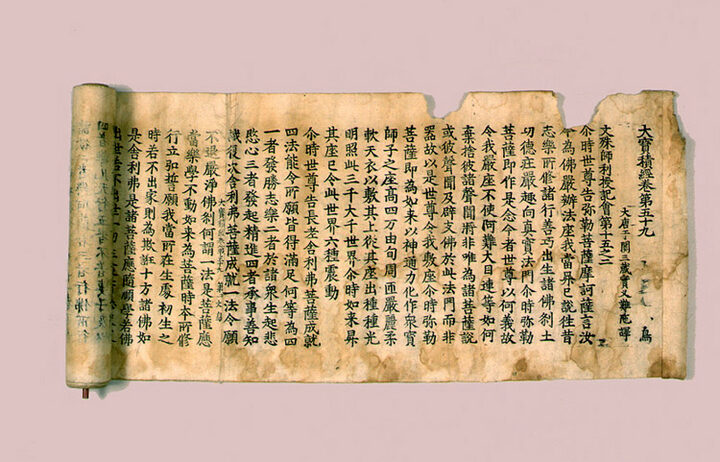 大寶積經卷第五十九
大唐于闐三藏實叉難陀譯
文殊師利授記會第十五之二
尒時世尊告弥勒菩薩摩訶薩言汝
今為佛嚴辦法座我當昇已說往昔
志樂所修諸行善巧出生諸佛剎土
功德莊嚴趣向真實法門尒時弥勒
菩薩即作是念今者世尊以何義故
令我嚴座不使阿難大目連等如何
棄捨彼諸聲聞斯非唯為諸菩薩說
或彼聲聞及辟支佛於此法門而非
器故以是世尊令我敷座尒時弥勒
菩薩即為如來以神通力化作眾寶
師子之座高四万由旬周匝嚴麗柔
軟天衣以敷其上從其座出種種光
明照此三千大千世界尒時如來昇
其座已令此世界六種震動
尒時世尊告長老舍利弗菩薩成就
四法能令所願皆得滿足何等為四
一者發勝志樂二者於諸眾生起悲
愍心三者發起精進四者承事善知
識復次舍利弗菩薩成就一法令願
不退嚴淨佛剎何謂一法是菩薩應
當樂學不動如來為菩薩時夲所修
行立如誓願我當所在生處初生之
時若不出家則為欺誑十方諸佛如
是舍利弗是諸菩薩應隨願學若佛
出世若不出世